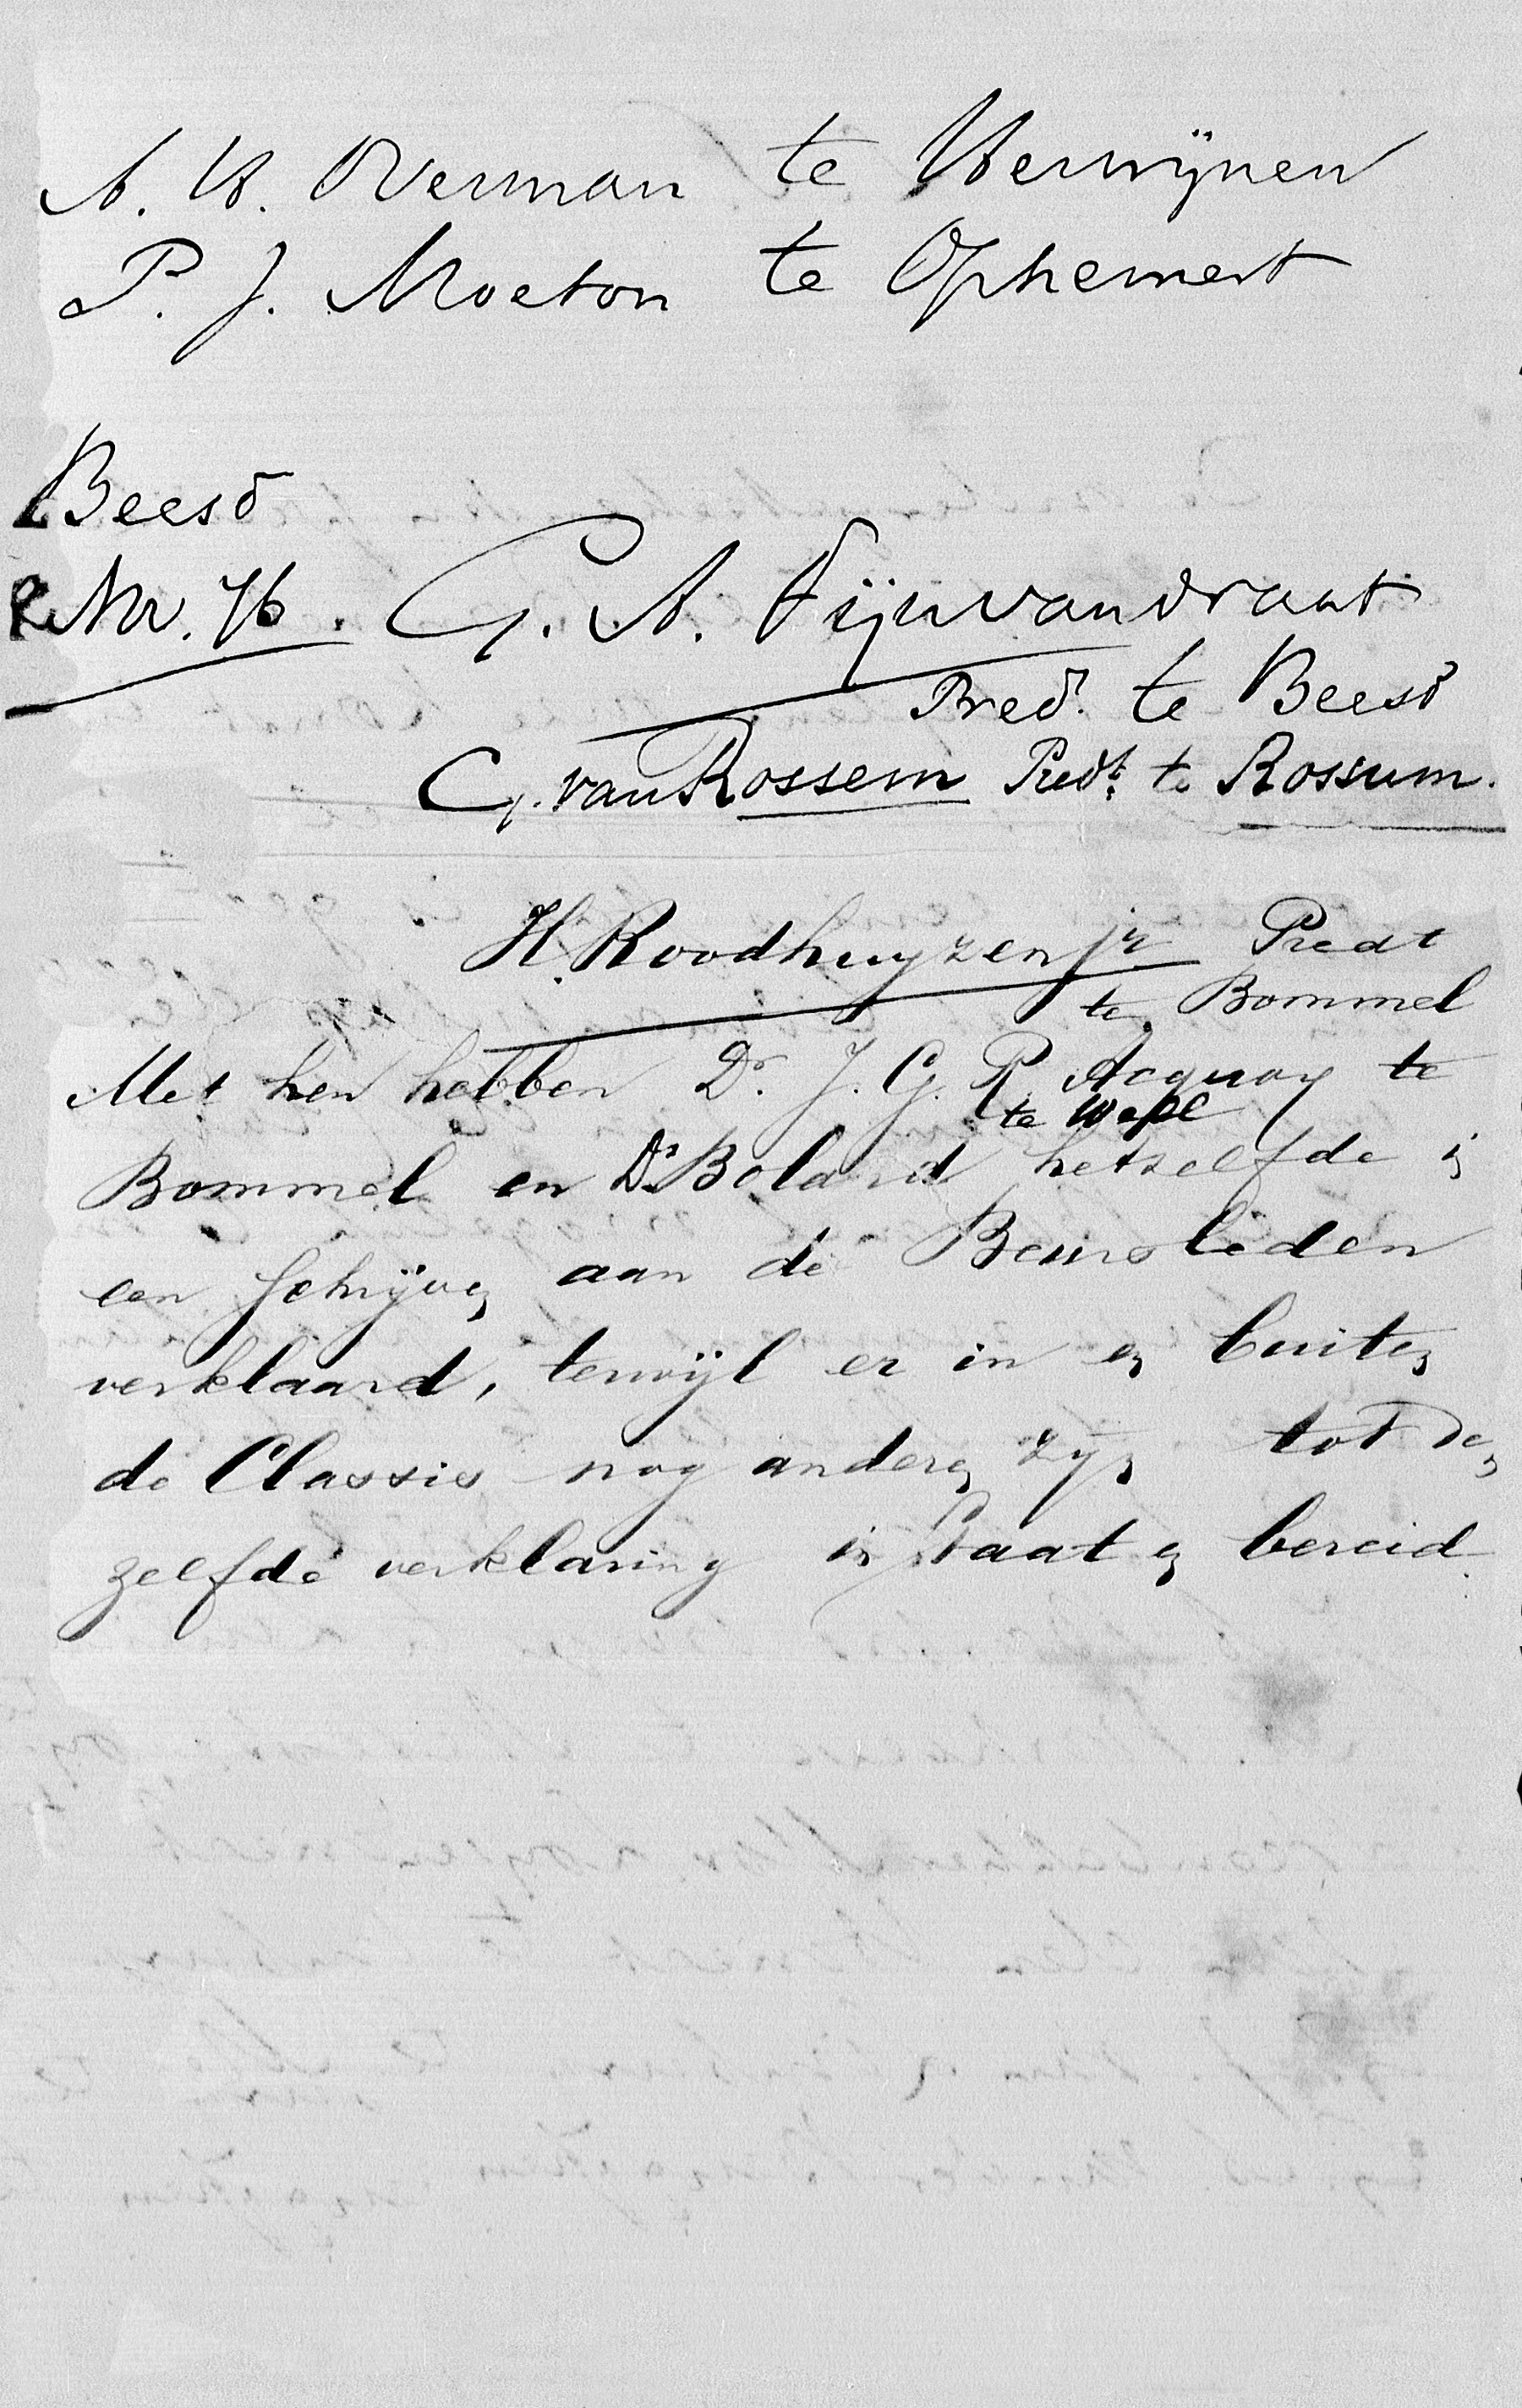 A. W. Overman te Herwijnen
P. J. Moeton te Ophemert
Beesd
Nr. 76. G. A. Fijnvandraat
Pred. te Beesd
G. van Rossem Predt. te Rossum.
H. Roodhuyzen jr Predt
te Bommel
Met hen hebben Dr. J. G. R. Acquoy te
te Well
Bommel en Ds Boland hetzelfde in
een schrijven aan de Beursleden
verklaard, terwijl er in en buiten
de Classis nog anderen zijn tot de
zelfde verklaring in staat en bereid.